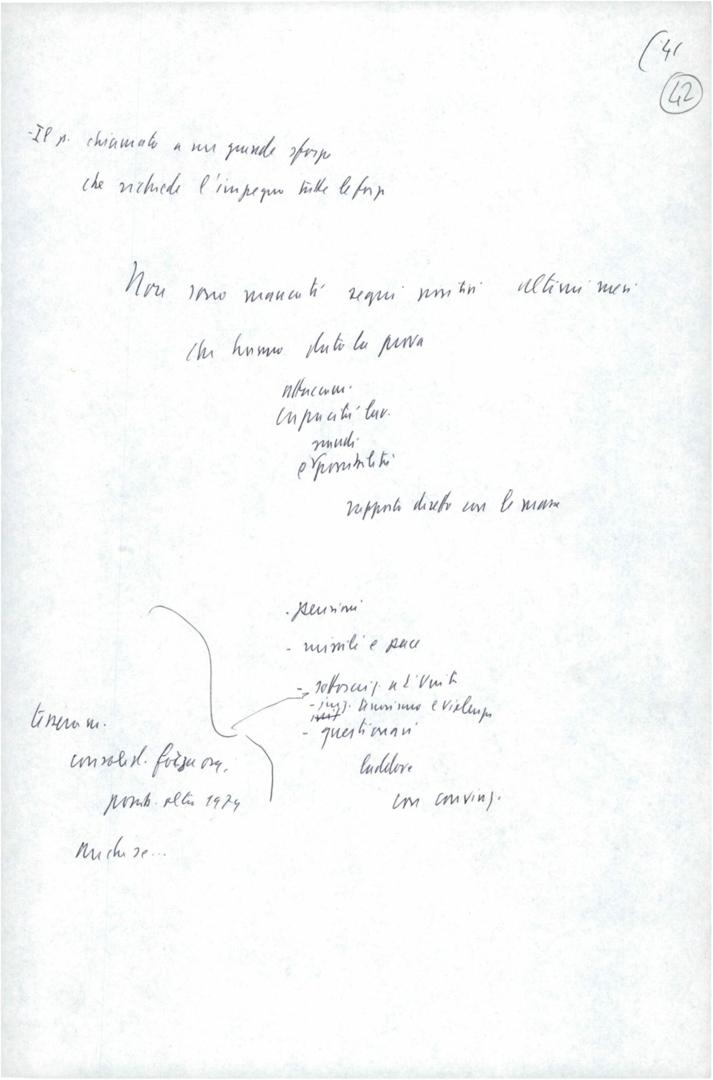 (41
42
- Il p. chiamato a un grande sforzo
che richiede l'impegno tutte le forze
Non sono mancati segni positivi ultimi mesi
che hanno dato la prova
attaccam.
capacità lav.
quadri
e sensibilità
rapporto diretto con le masse
- pensioni
- missili e pace
- sottoscriz. a l'Unità
- iniz. terrorismo e violenza
- questionari
laddove
con convinz.
tesseram.
consolid. forza org.
possib. oltre 1979
Anche se...